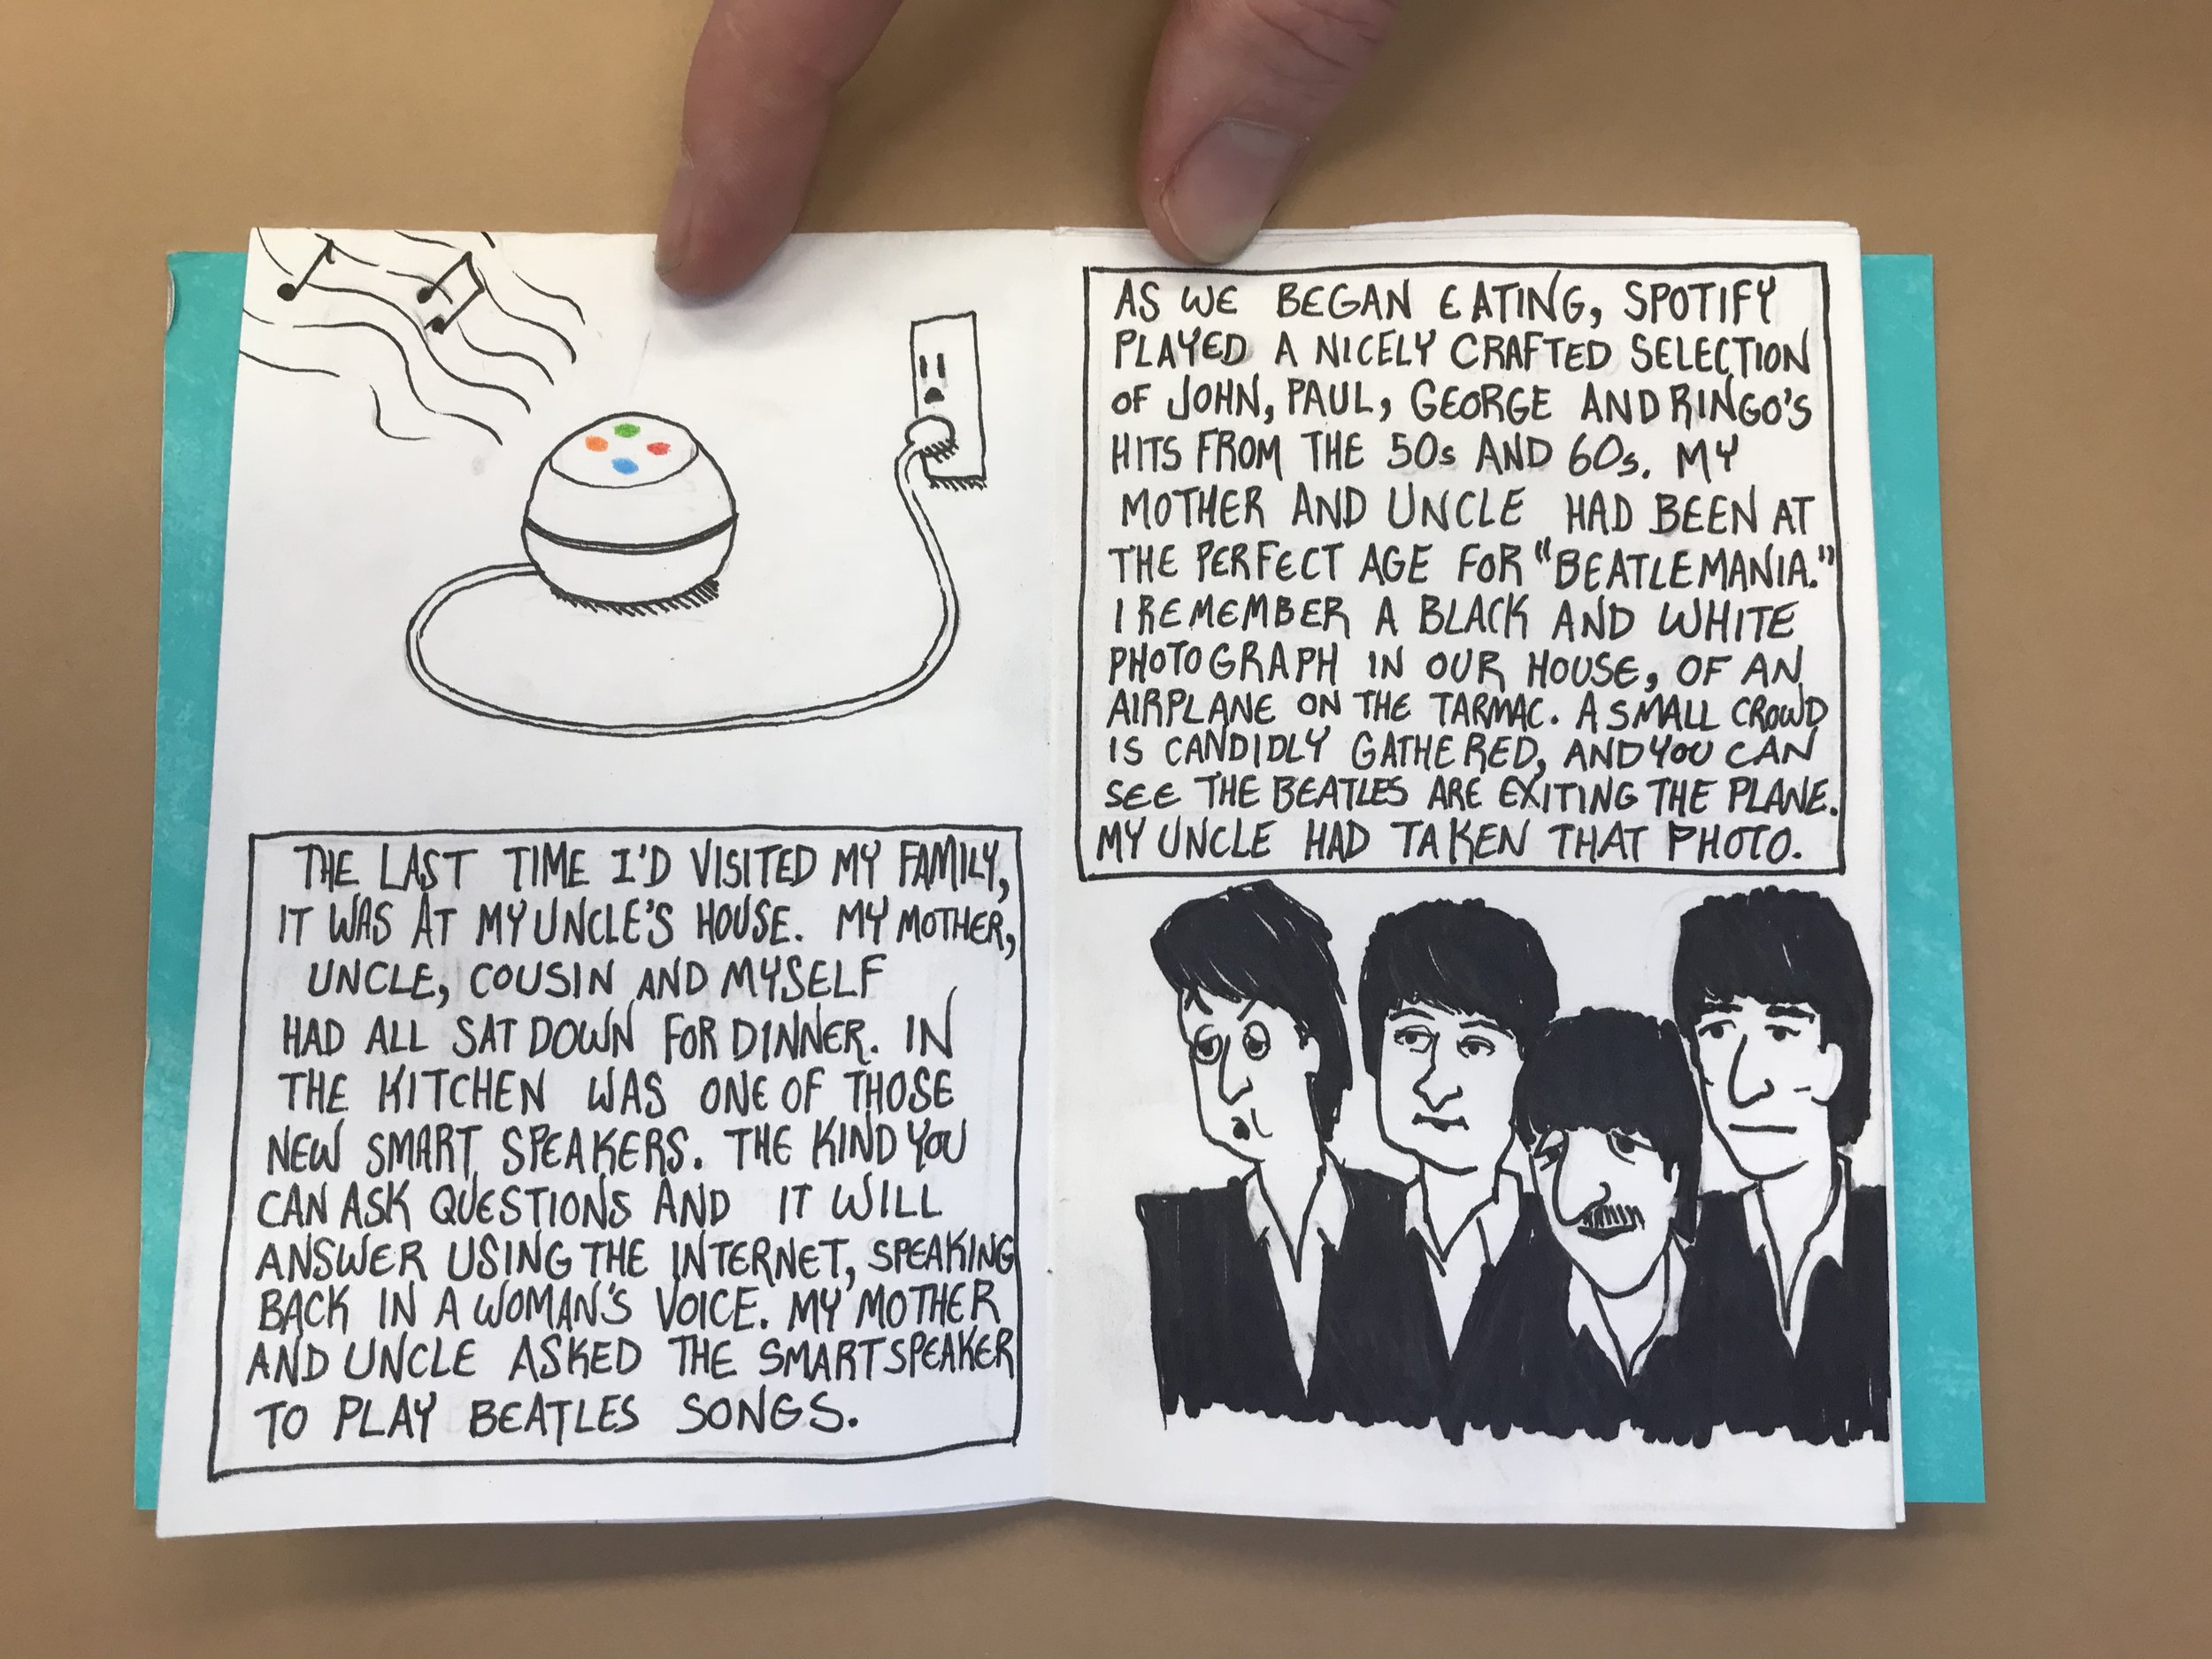 THE LAST TIME I'D VISITED MY FAMILY,
IT WAS AT MY UNCLE'S HOUSE. MY MOTHER,
UNCLE, COUSIN AND MYSELF
HAD ALL SAT DOWN FOR DINNER. IN
THE KITCHEN WAS ONE OF THOSE
NEW SMART SPEAKERS. THE KIND YOU
CAN ASK QUESTIONS AND IT WILL
ANSWER USING THE INTERNET, SPEAKING
BACK IN A WOMAN'S VOICE. MY MOTHER
AND UNCLE ASKED THE SMART SPEAKER
TO PLAY BEATLES SONGS.
AS WE BEGAN EATING, SPOTIFY
PLAYED A NICELY CRAFTED SELECTION
OF JOHN, PAUL, GEORGE AND RINGO'S
HITS FROM THE 50s AND 60s. MY
MOTHER AND UNCLE HAD BEEN AT
THE PERFECT AGE FOR "BEATLEMANIA."
I REMEMBER A BLACK AND WHITE
PHOTOGRAPH IN OUR HOUSE, OF AN
AIRPLANE ON THE TARMAC. A SMALL CROWD
IS CANDIDLY GATHERED, AND YOU CAN
SEE THE BEATLES ARE EXITING THE PLANE.
MY UNCLE HAD TAKEN THAT PHOTO.